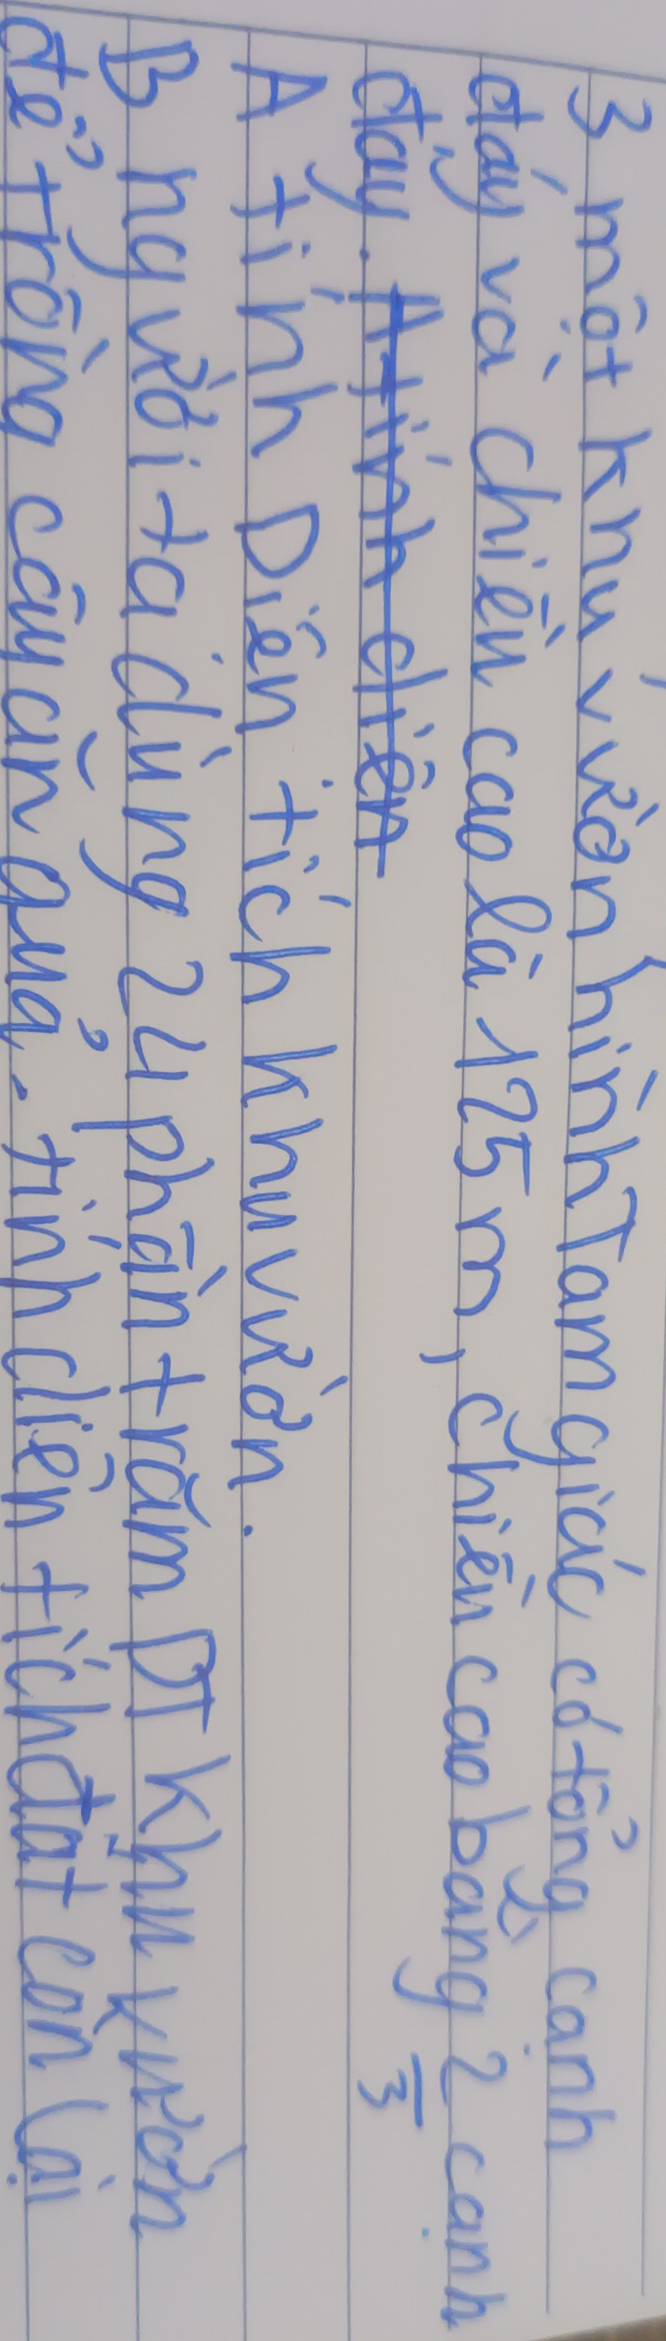 3 một khu vườn hình Tam giác có tổng cạnh
đáy và chiều cao là 125m, chiều cao bằng 2/3 cạnh
đáy. A tính diện
A tính Diện tích khu vườn.
B người ta dùng 24 phần trăm DT khu vườn
để trồng cây ăn quả. tính diện tích đất còn lại